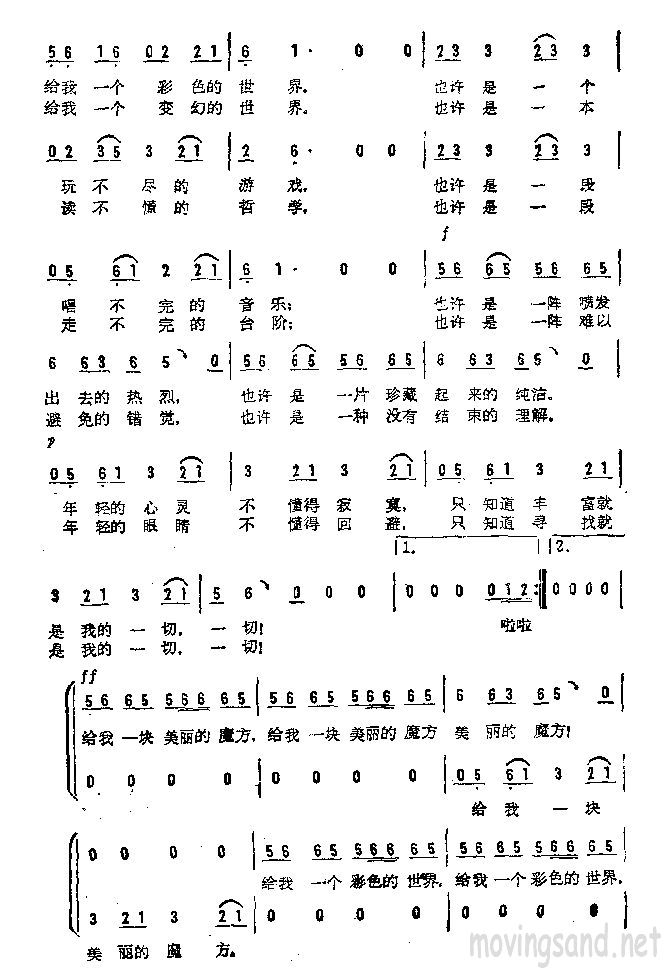 5 6 1 6 0 2 2 1 | 6 1· 0 0 | 2 3 3 2 3 3
给我 一个 彩 色的 世 界。 也许 是 一 个
给我 一个 变 幻的 世 界。 也许 是 一 本
0 2 3 5 3 2 1 | 2 6· 0 0 | 2 3 3 2 3 3
玩 不 尽 的 游 戏, 也许 是 一 段
读 不 懂 的 哲 学, 也许 是 一 段
f
0 5 6 1 2 2 1 | 6 1· 0 0 | 5 6 6 5 5 6 6 5
唱 不 完 的 音 乐; 也许 是 一阵 喷发
走 不 完 的 台 阶; 也许 是 一阵 难以
6 6 3 6 5 0 | 5 6 6 5 5 6 6 5 | 6 6 3 6 5 0
出 去的 热 烈, 也许 是 一片 珍藏 起 来的 纯洁。
避 免的 错 觉, 也许 是 一种 没有 结 束的 理解。
p
0 5 6 1 3 2 1 | 3 2 1 3 2 1 | 0 5 6 1 3 2 1
年 轻的 心 灵 不 懂得 寂 寞, 只 知道 丰 富就
年 轻的 眼 睛 不 懂得 回 避, 只 知道 寻 找就
1. 2.
3 2 1 3 2 1 | 5 6 0 0 0 | 0 0 0 0 1 2 :‖ 0 0 0 0
是 我的 一 切, 一 切! 啦啦
是 我的 一 切, 一 切!
ff
5 6 6 5 5 6 5 6 6 5 | 5 6 6 5 5 6 5 6 6 5 | 6 6 3 6 5 0
给我 一块 美丽的 魔方, 给我 一块 美丽的 魔方 美 丽的 魔方!
0 0 0 0 | 0 0 0 0 | 0 5 6 1 3 2 1
给 我 一 块
0 0 0 0 | 5 6 6 5 5 6 5 6 6 5 | 5 6 6 5 5 6 5 6 6 5
给我 一个 彩色的 世界, 给我 一个 彩色的 世界,
3 2 1 3 2 1 | 0 0 0 0 | 0 0 0 0
美 丽的 魔 方。
movingsand.net